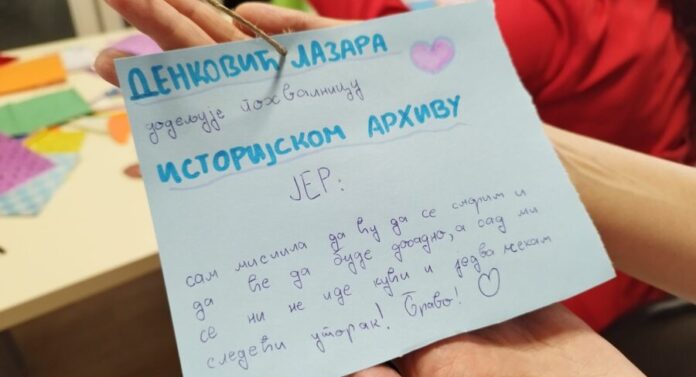 ДЕНКОВИЋ ЛАЗАРА
додељује похвалницу
ИСТОРИЈСКОМ АРХИВУ
ЈЕР:
сам мислила да ћу да се смарим и
да ће да буде досадно, а сад ми
се ни не иде кући и једва чекам
следећи уторак! Браво!